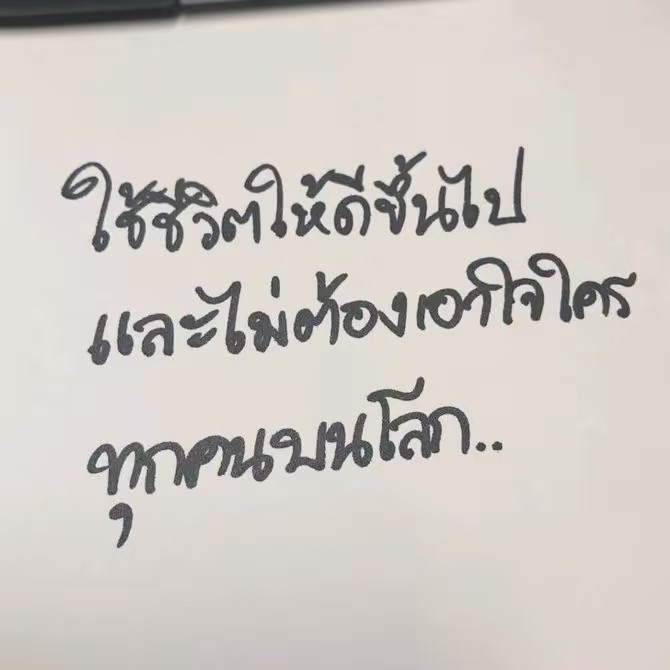 ใช้ชีวิตให้ดีขึ้นไป
และไม่ต้องเอาใจใคร
ทุกคนบนโลก..